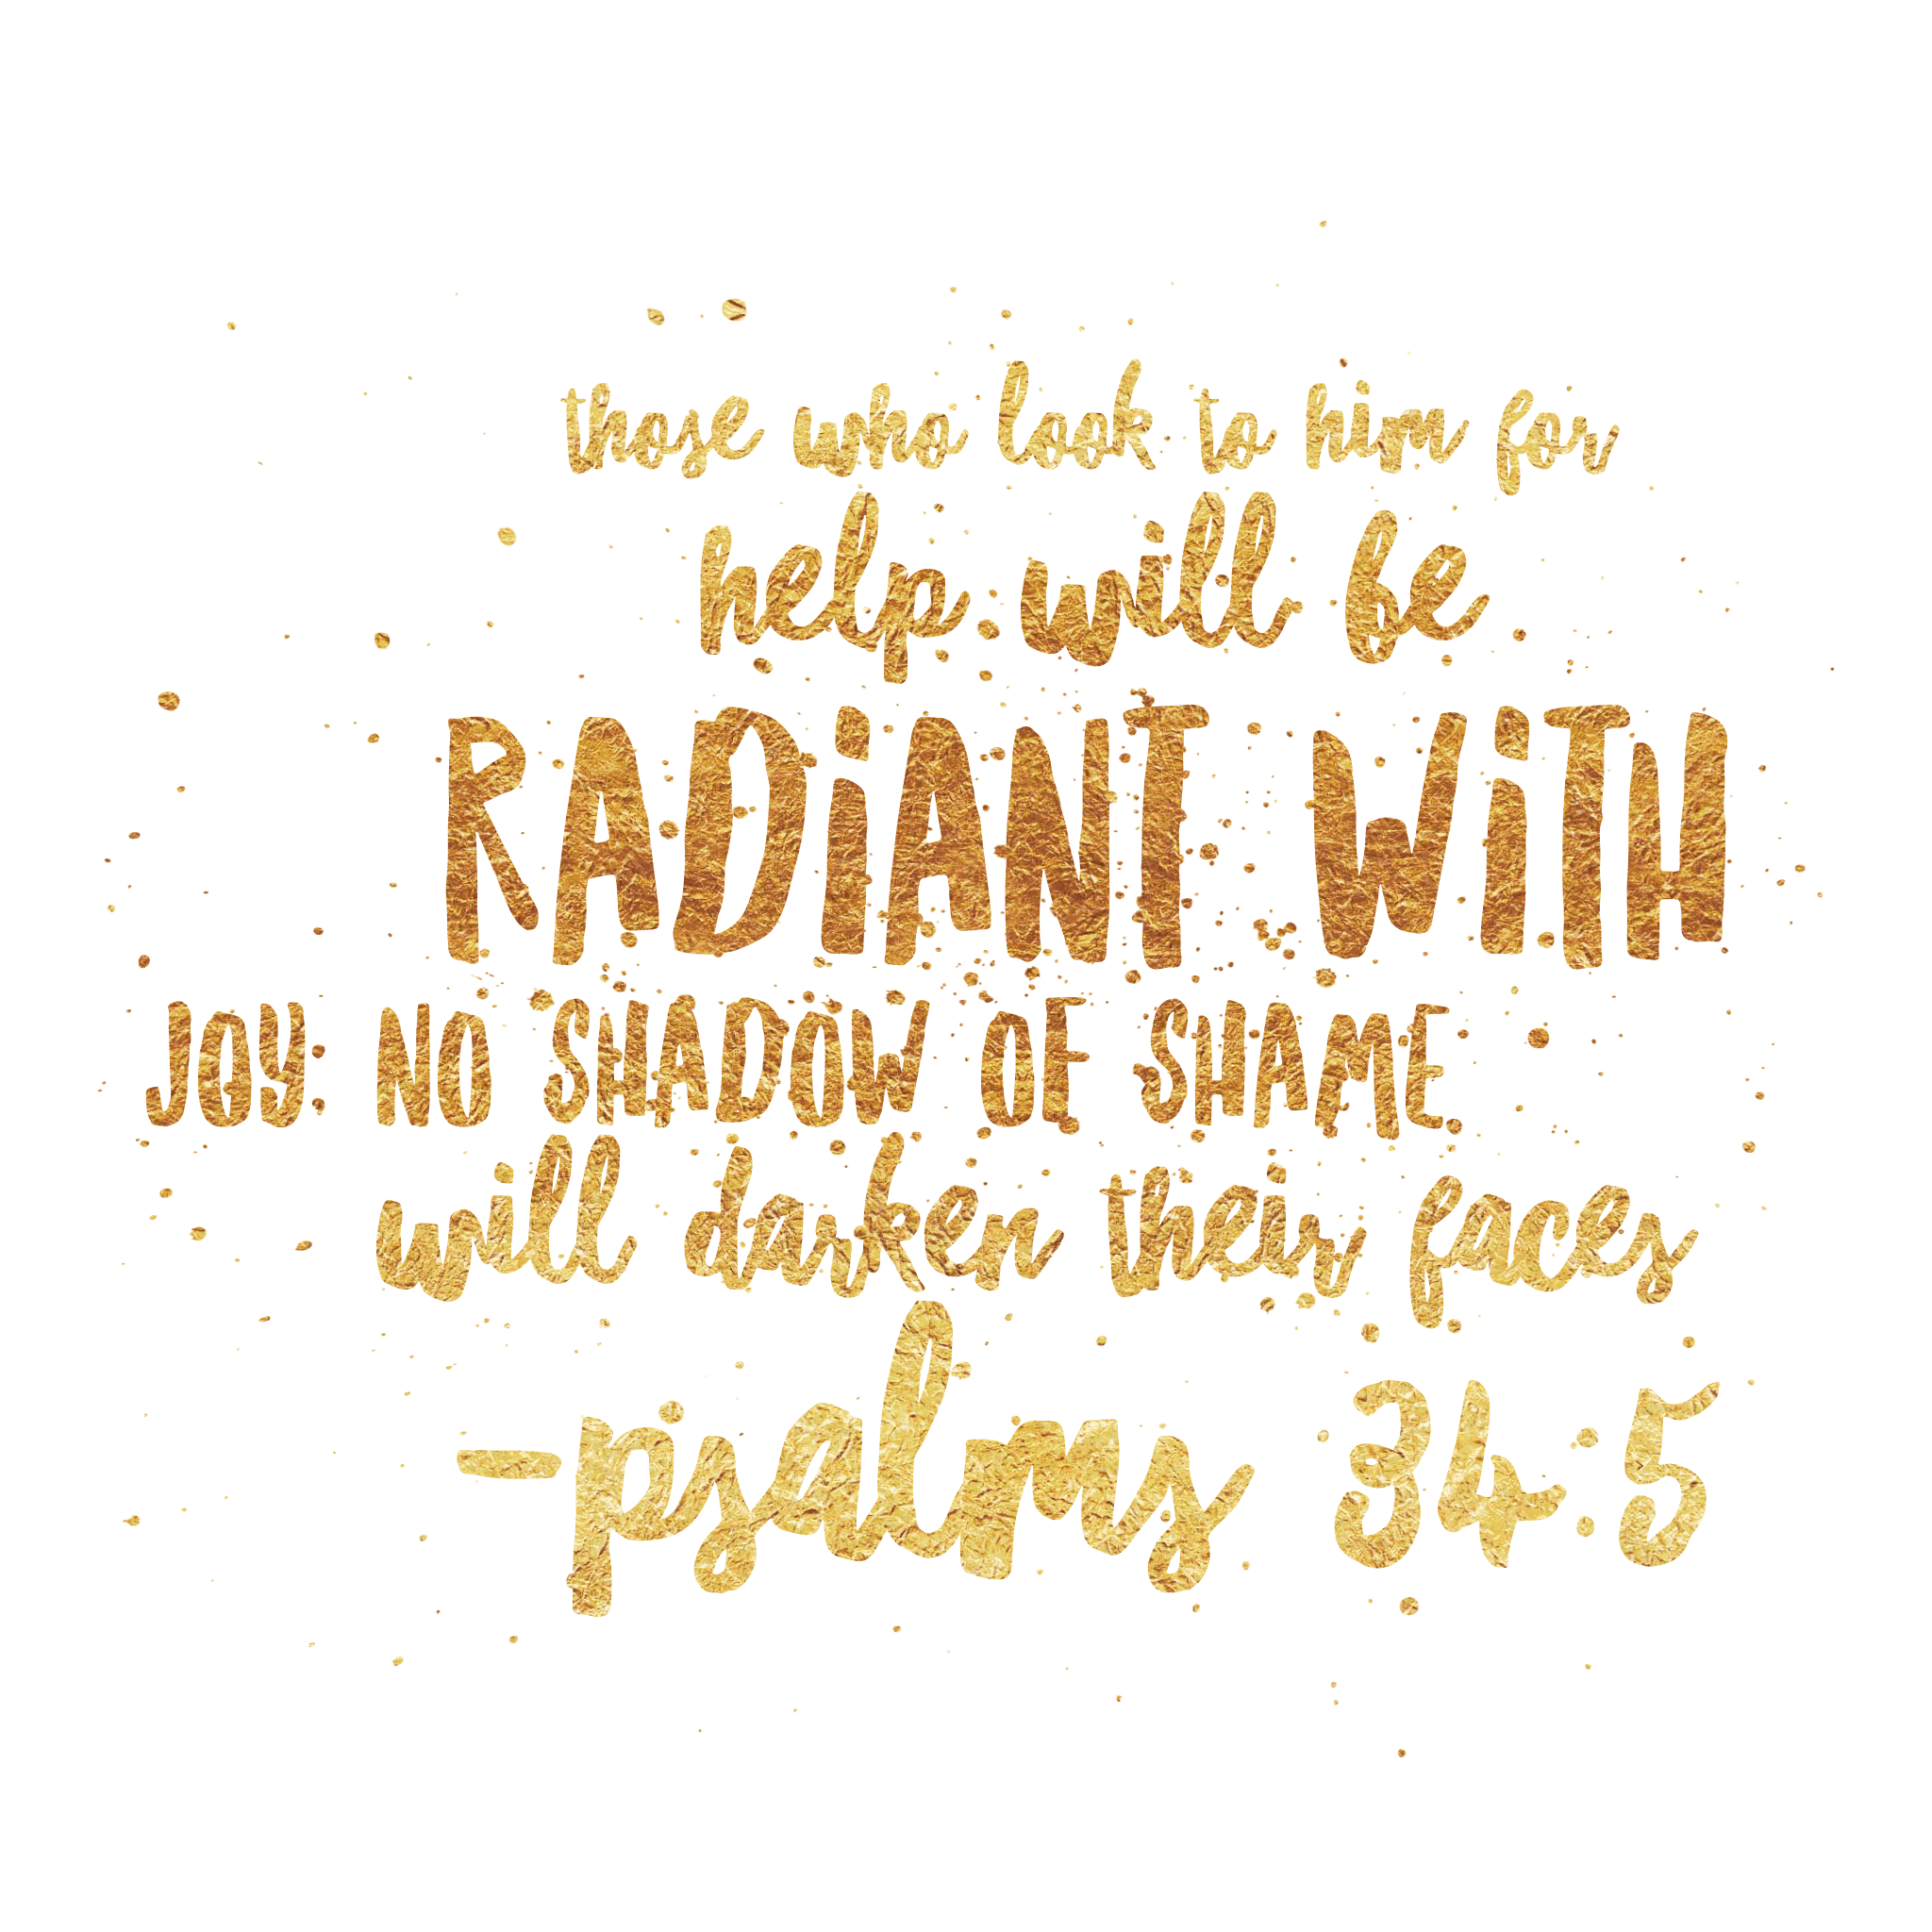 those who look to him for
help will be
RADiANT WiTH
JOY: NO SHADOW OF SHAME
will darken their faces
-psalms 34:5